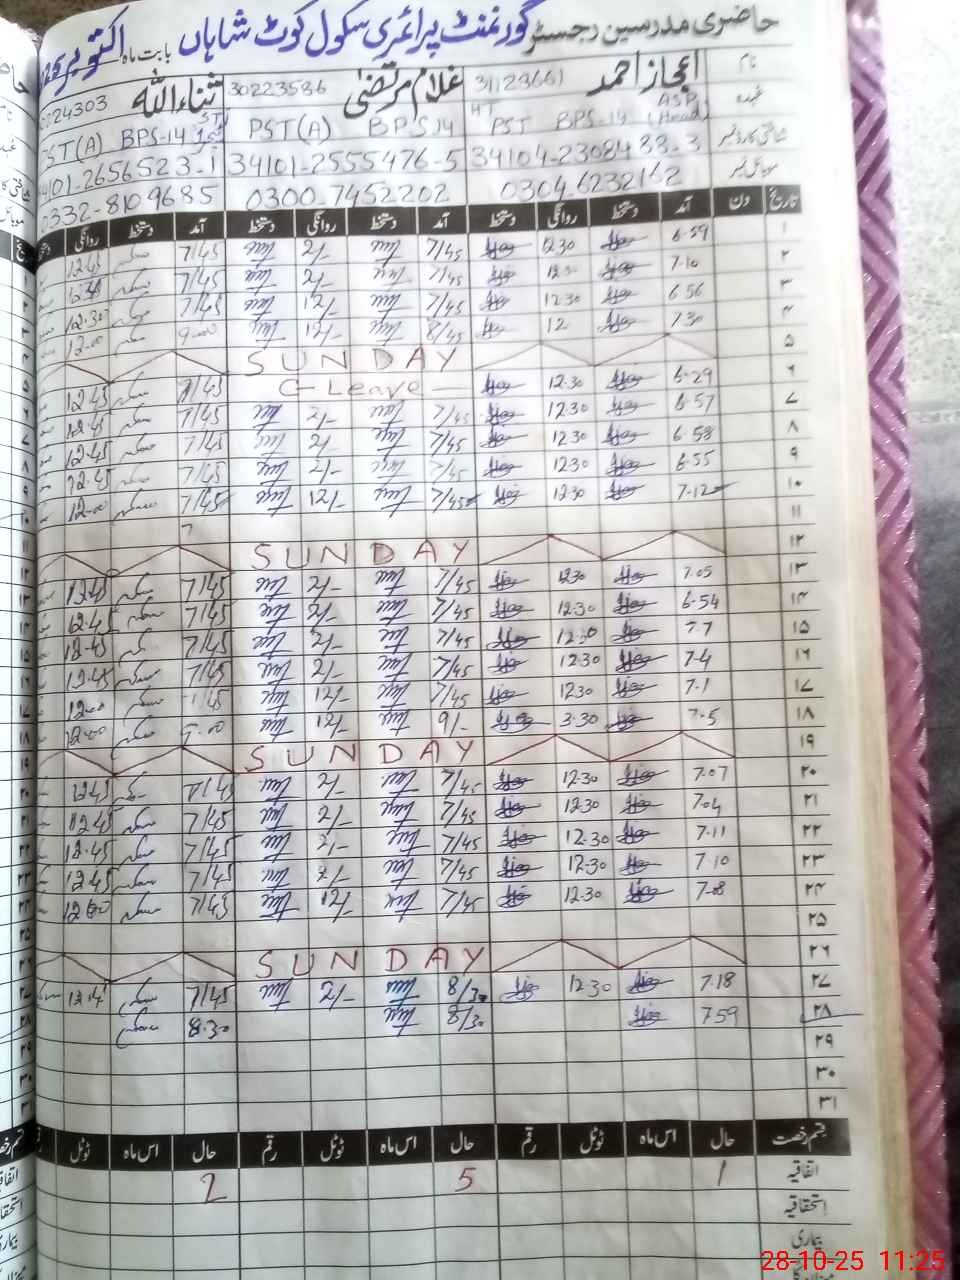 حاضری مدرسین رجسٹر گورنمنٹ پرائمری سکول کوٹ شاہاں بابت ماہ اکتوبر
نام اعجاز احمد 31123661 غلام مرتضیٰ 30223536 ثناء اللہ 024303
عہدہ HT PST BPS-14 PST(A) BPS-14 PST(A) BPS-14
شناختی کارڈ نمبر 34104-2308433-3 34101-2555476-5 34101-2656523-1
موبائل نمبر 0304-6232162 0300-7452202 0332-8109685
تاریخ دن آمد دستخط روانگی دستخط آمد دستخط روانگی دستخط آمد دستخط روانگی
۱ 6-59 12.30 7/45 12/- 7/45 12.45
۲ 7-10 12.30 7/45 12/- 7/45
۳ 6.56 12.30 7/45 12/- 7/45 12.30
۴ 7.30 12 8/45 12/- 9-00 12-00
۵ SUNDAY
۶ 6-29 12.30 C-Leave 7/45 12.45
۷ 6-57 12.30 7/45 12/- 7/45 12.45
۸ 6-58 12.30 7/45 12/- 7/45 12.45
۹ 6-55 12.30 7/45 12/- 7/45 12.45
۱۰ 7-12 12.30 7/45 12/- 7/45 12-00
۱۱
۱۲ SUNDAY
۱۳ 7.05 12.30 7/45 12/- 7/45 12.45
۱۴ 6-54 12.30 7/45 12/- 7/45 12.45
۱۵ 7-7 12.30 7/45 12/- 7/45 12.45
۱۶ 7-4 12.30 7/45 12/- 7/45 12.45
۱۷ 7-1 12.30 7/45 12/- 7/45 12-00
۱۸ 7-5 3.30 9/- 12/- 9-00 12-00
۱۹ SUNDAY
۲۰ 7-07 12.30 7/45 12/- 7/45 12.45
۲۱ 7-04 12.30 7/45 12/- 7/45 12.45
۲۲ 7-11 12.30 7/45 12/- 7/45 12.45
۲۳ 7-10 12.30 7/45 12/- 7/45 12.45
۲۴ 7-08 12.30 7/45 12/- 7/45 12.00
۲۵
۲۶ SUNDAY
۲۷ 7-18 12.30 8/30 12/- 7/45
۲۸ 759 8/30 8.30
۲۹
۳۰
۳۱
قسم رخصت حال اس ماہ ٹوٹل رقم حال اس ماہ ٹوٹل رقم حال اس ماہ ٹوٹل
اتفاقیہ 1 5 2
استحقاقیہ
بیماری
28-10-25 11:25